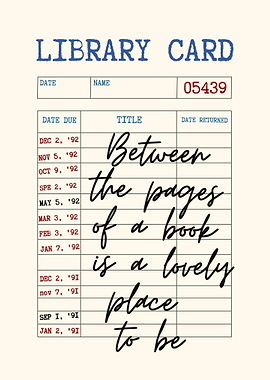 LIBRARY CARD
DATE NAME 05439
DATE DUE TITLE DATE RETURNED
DEC 2, '92
NOV 5, '92
OCT 9, '92
SPE 2, '92
MAY 5, '92
MAR 3, '92
FEB 3, '92
JAN 7, '92
DEC 2, '91
nov 7, '91
SEP 1, '91
JAN 2, '91
Between
the pages
of a book
is a lovely
place
to be